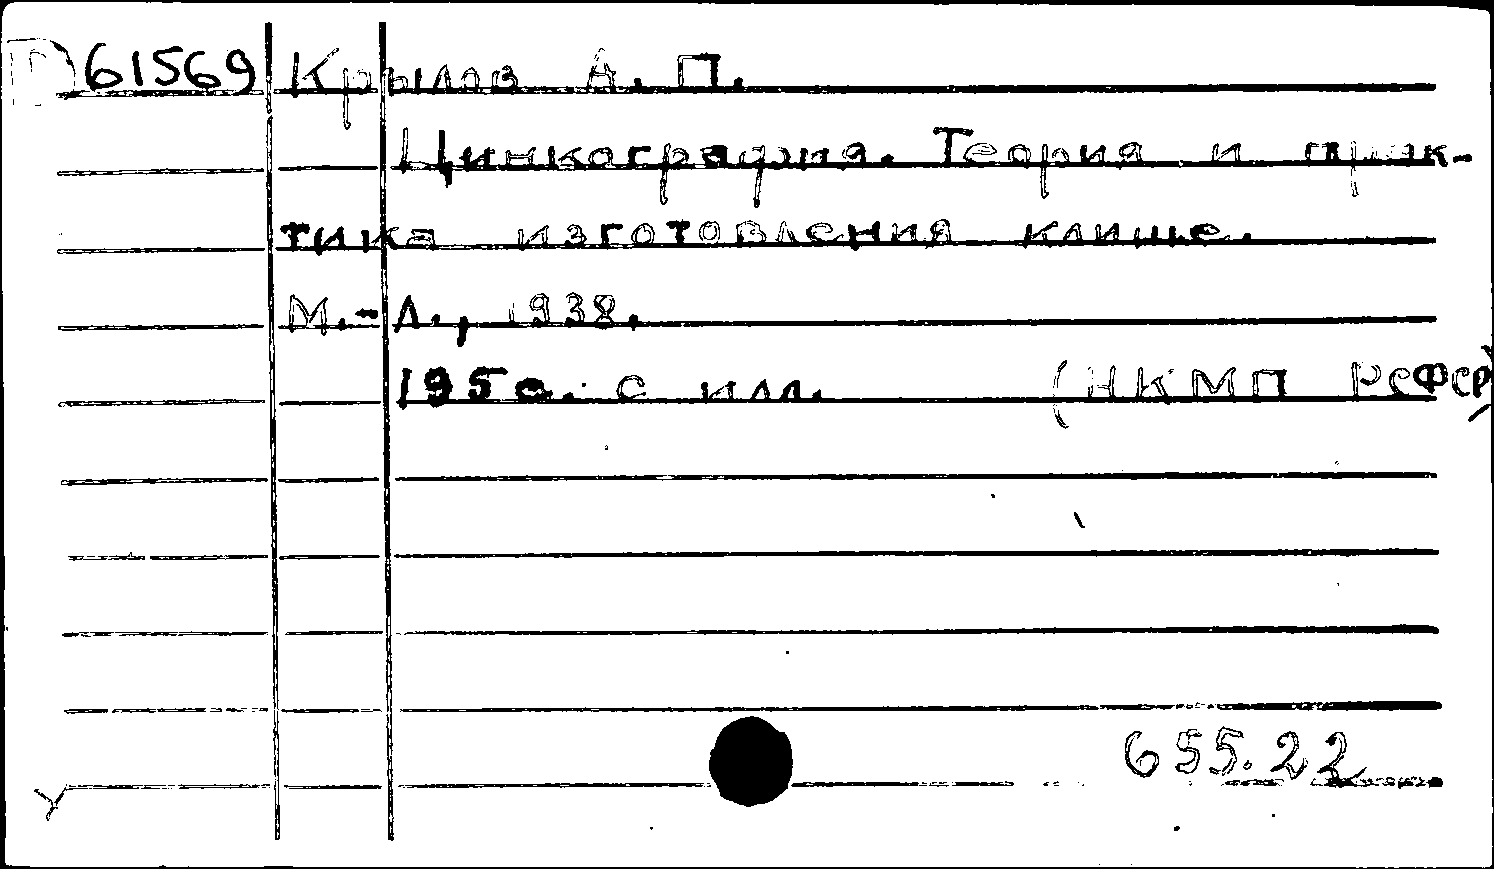 П 61569 Крылов А. П.
Цинкография. Теория и прак-
тика изготовления клише.
М.-Л., 1938.
195 с. с илл. (НКМП РСФСР)
655.22